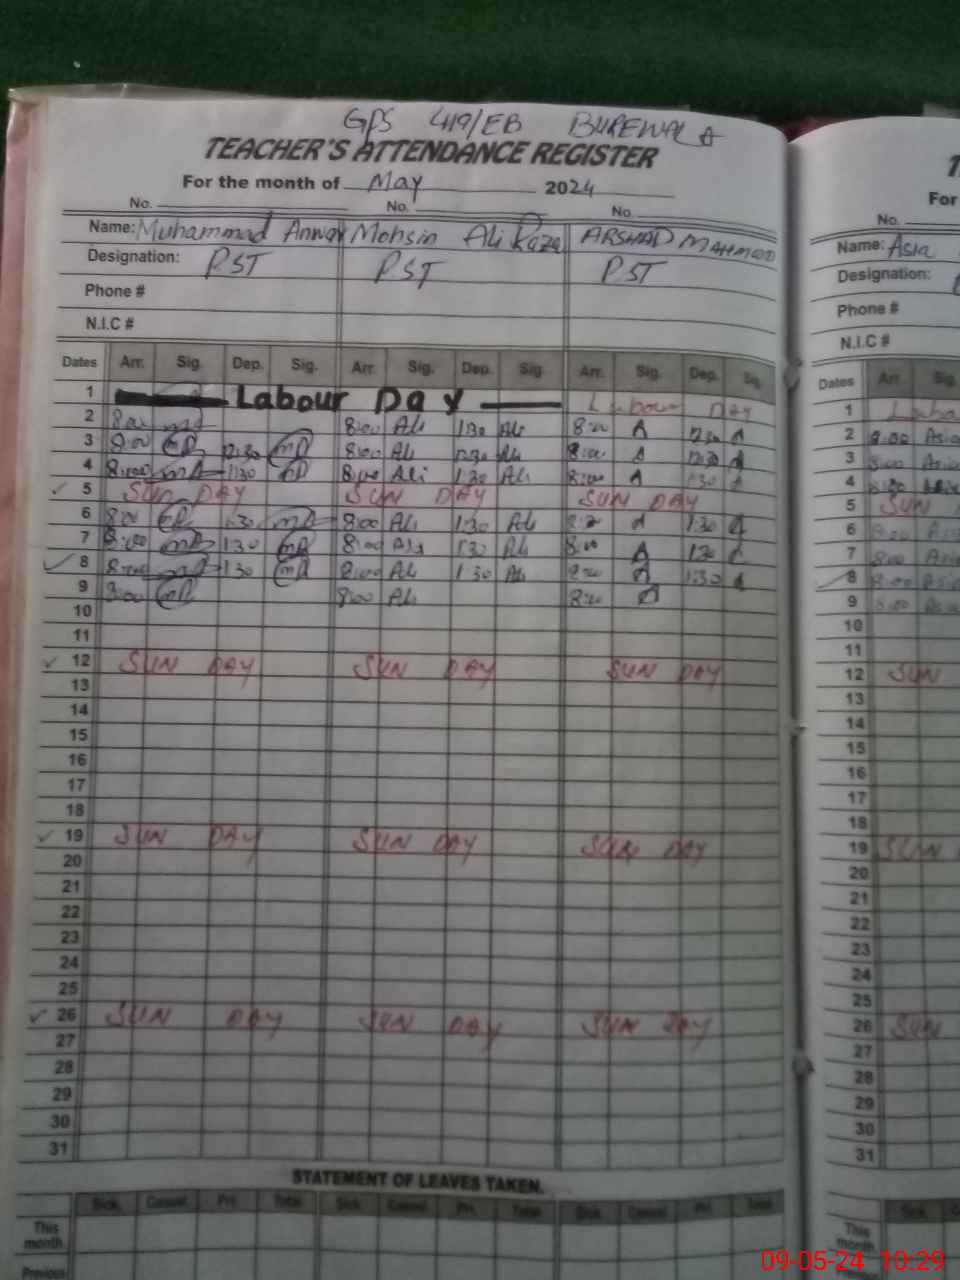 GPS 419/EB BUREWALA
TEACHER'S ATTENDANCE REGISTER
For the month of May 2024
No. No. No.
Name: Muhammad Anwar Mohsin Ali Raza ARSHAD MAHMOOD
Designation: PST PST PST
Phone #
N.I.C #
Dates Arr. Sig. Dep. Sig. Arr. Sig. Dep. Sig. Arr. Sig. Dep. Sig.
1 Labour Day Labour Day
2 8:00 8:00 Ali 1:30 Ali 8:00 A 12:30 A
3 8:00 12:30 8:00 Ali 12:30 Ali 8:00 A 12:30 A
4 8:00 1:30 8:00 Ali 1:30 Ali 8:00 A 1:30 A
5 SUN DAY SUN DAY SUN DAY
6 8:00 1:30 8:00 Ali 1:30 Ali 8:00 A 1:30 A
7 8:00 1:30 8:00 Ali 1:30 Ali 8:00 A 1:30
8 8:00 1:30 8:00 Ali 1:30 Ali 8:00 A 1:30 A
9 8:00 8:00 Ali 8:00 A
10
11
12 SUN DAY SUN DAY SUN DAY
13
14
15
16
17
18
19 SUN DAY SUN DAY SUN DAY
20
21
22
23
24
25
26 SUN DAY SUN DAY SUN DAY
27
28
29
30
31
STATEMENT OF LEAVES TAKEN.
Sick. Casual. Pri. Total. Sick. Casual. Pri. Total. Sick. Casual. Pri. Total.
This month.
Previous
For
No.
Name: Asia
Designation:
Phone #
N.I.C #
Dates Arr. Sig.
1 Labo
2 8:00 Asia
3 8:00 Asia
4 8:00 Asia
5 SUN
6 8:00 Asia
7 8:00 Asia
8 8:00 Asia
9 8:00 Asia
10
11
12 SUN
13
14
15
16
17
18
19 SUN
20
21
22
23
24
25
26 SUN
27
28
29
30
31
Sick.
This month.
Previous
09-05-24 10:29